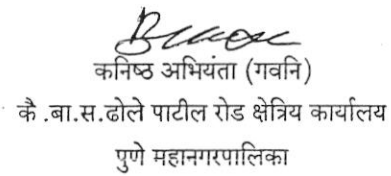 कनिष्ठ अभियंता (गवनि)
कै .बा.स.ढोले पाटील रोड क्षेत्रिय कार्यालय
पुणे महानगरपालिका